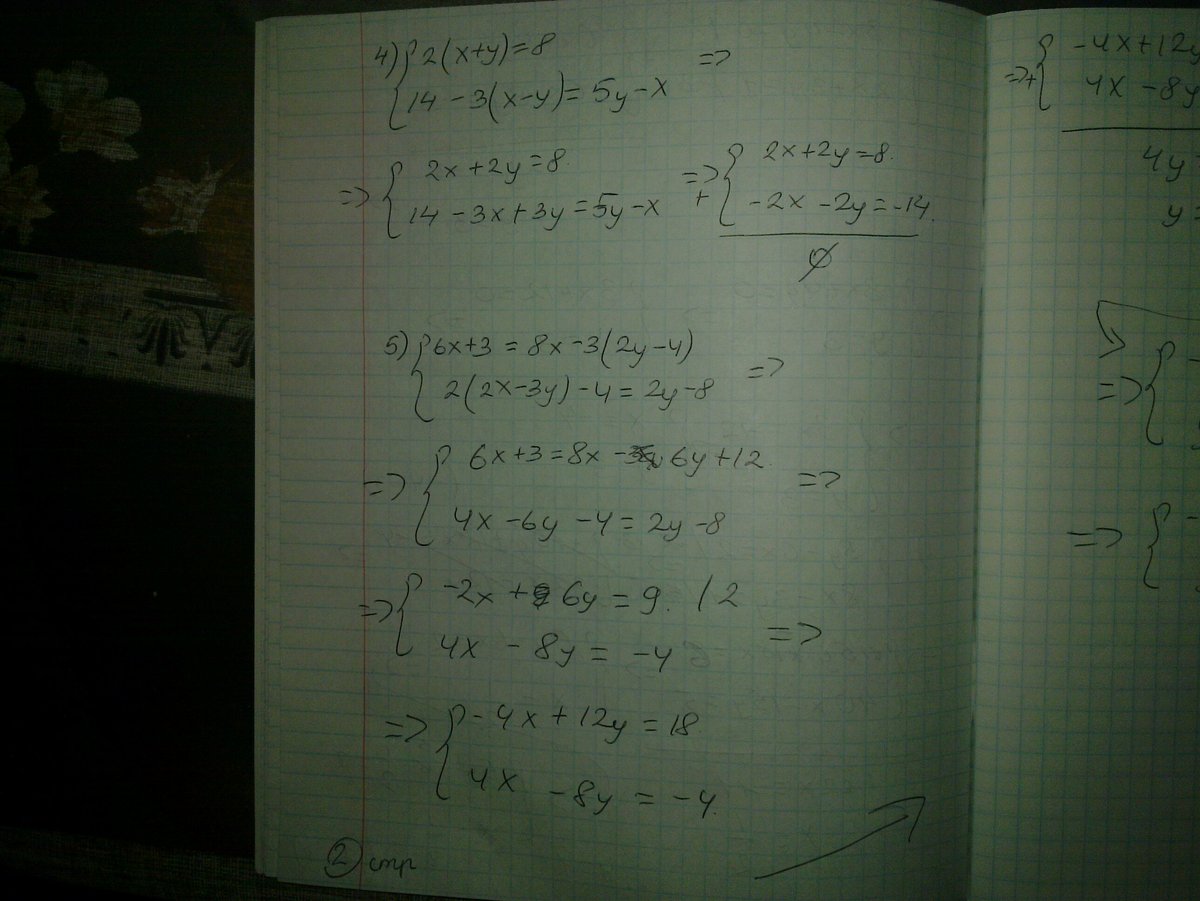 4) { 2(x+y)=8 =>
14 - 3(x-y) = 5y-x
=> { 2x+2y=8
14 - 3x+3y = 5y-x
=> + { 2x+2y=8.
-2x -2y = -14.
∅
5) { 6x+3 = 8x -3(2y-4) =>
2(2x-3y) -4 = 2y-8
=> { 6x+3 = 8x - 6y+12. =>
4x -6y -4 = 2y -8
=> { -2x + 6y = 9. /2 =>
4x - 8y = -4
=> { -4x + 12y = 18.
4x - 8y = -4.
② стр
=> + { -4x+12y
4x -8y
4y
y=
=> { -
=> { -